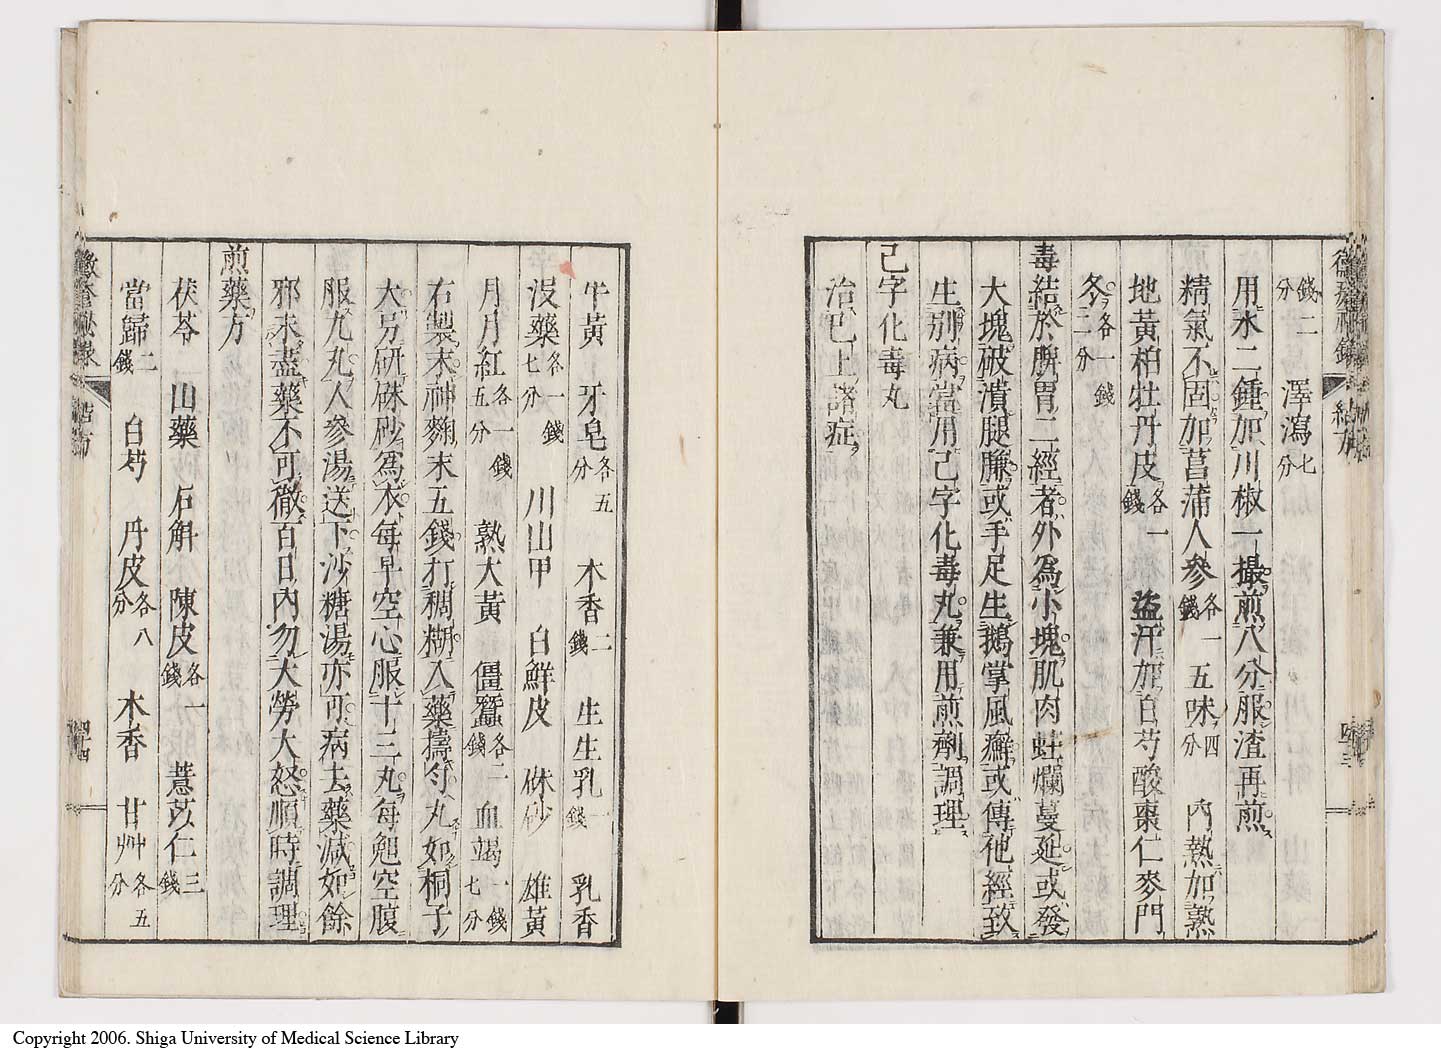 錢二分　澤瀉七分
用水二鍾加川椒一撮煎八分服渣再煎
精氣不固加菖蒲人參各一錢　五味四分　內熱加熟
地黃柏牡丹皮各一錢　盜汗加白芍酸棗仁麥門
冬各一錢二分
毒結於脾胃二經者外為小塊肌肉蛀爛蔓延或發
大塊破潰腿臁或手足生鵝掌風癬或傳他經致
生別病當用己字化毒丸兼用煎劑調理
己字化毒丸
治已上諸症
牛黃　牙皂各五分　木香二錢　生生乳一錢　乳香
沒藥各一錢七分　川山甲　白鮮皮　硃砂　雄黃
月月紅各一錢五分　熟大黃　僵蠶各二錢　血竭一錢七分
右製末神麴末五錢打稠糊入藥擣勻丸如桐子
大另研硃砂為衣每早空心服十三丸每晚空腹
服九丸人參湯送下沙糖湯亦可病去藥減如餘
邪未盡藥不可徹百日內勿大勞大怒順時調理
煎藥方
茯苓　山藥　石斛　陳皮各一錢　薏苡仁三錢
當歸二錢　白芍　丹皮各八分　木香　甘艸各五分
四十四
Copyright 2006. Shiga University of Medical Science Library